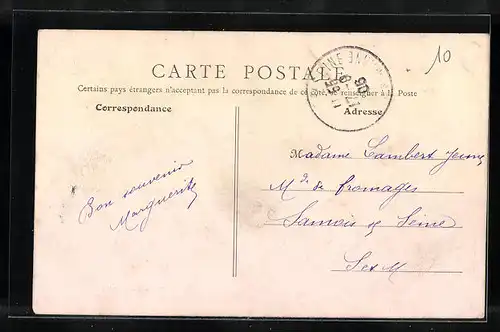 10
CARTE POSTALE
Certains pays étrangers n'acceptant pas la correspondance de ce côté, se renseigner à la Poste
Correspondance
Adresse
Madame Lambert Jeune
Mde de fromages
Bon souvenir
Marguerite
Samois s/ Seine
S et M